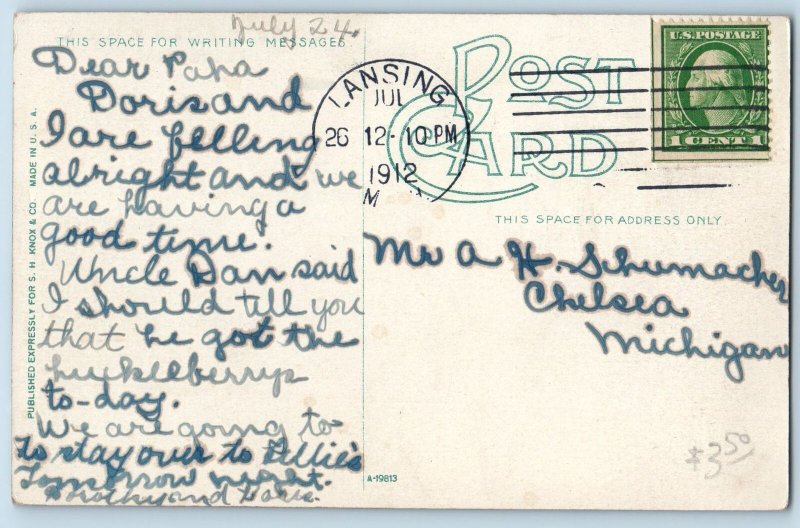 July 24.
THIS SPACE FOR WRITING MESSAGES
Dear Papa
Doris and
I are felling
alright and we
are having a
good time.
Uncle Dan said
I should tell you
that he got the
huckelberrys
to-day.
We are going to
to stay over to Tillie's
Tomorrow night.
and
PUBLISHED EXPRESSLY FOR S. H. KNOX & CO. MADE IN U. S. A.
LANSING
JUL
26 12-10 PM
1912
M
POST
CARD
U.S. POSTAGE
1 CENT 1
THIS SPACE FOR ADDRESS ONLY.
Mr A H. Schumacher
Chelsea
Michigan
$3.50
A-19813